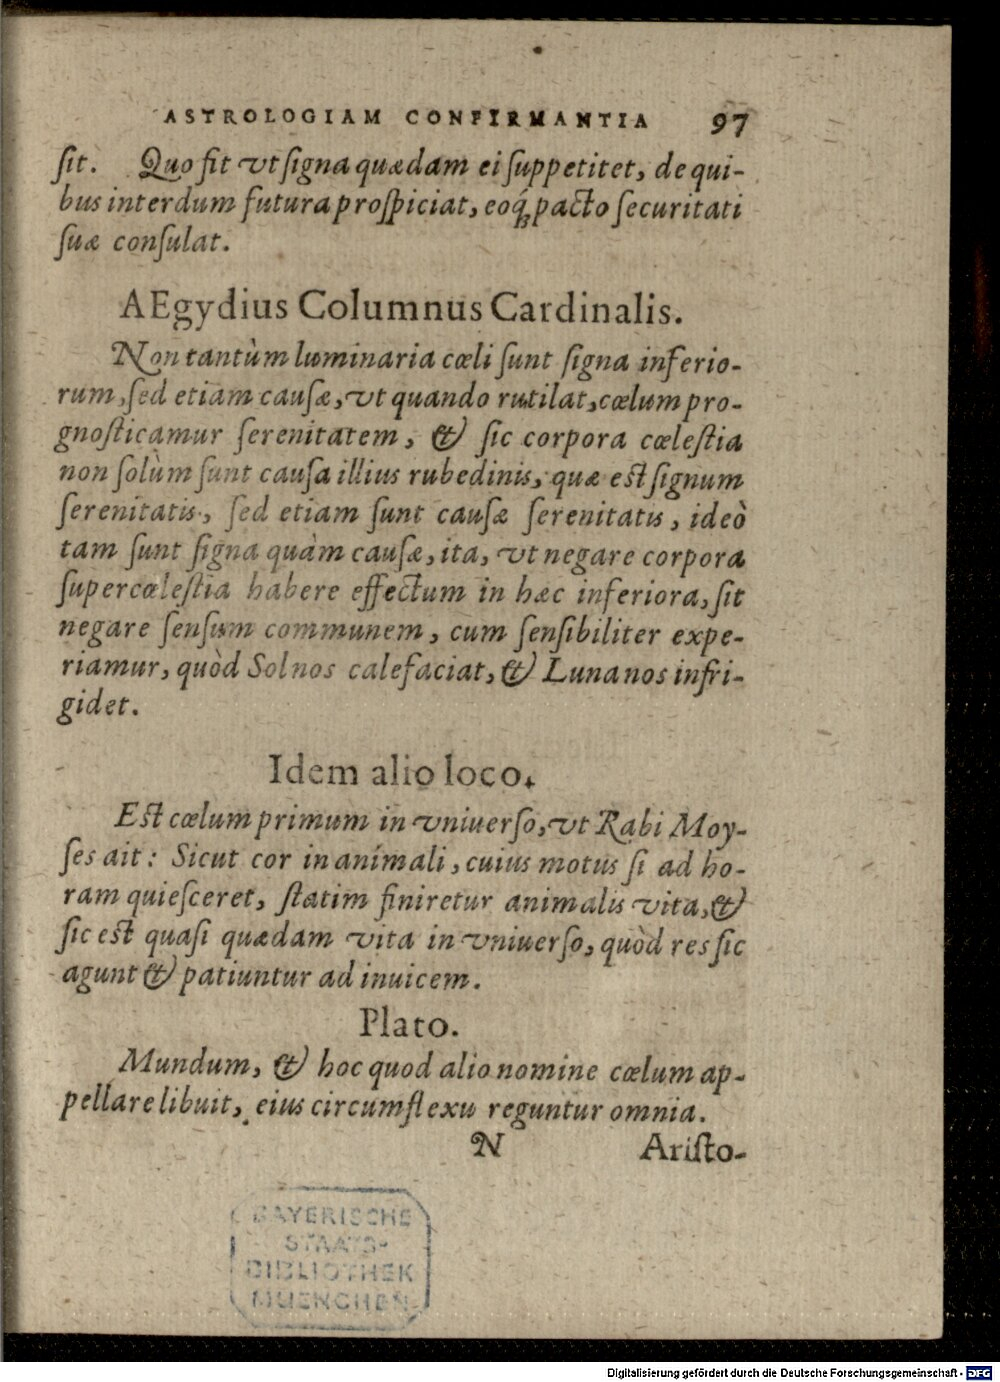 ASTROLOGIAM CONFIRMANTIA 97
ſit. Quo fit vt ſigna quædam ei ſuppetitet, de qui-
bus interdum futura proſpiciat, eoq́; pacto ſecuritati
ſuæ conſulat.
AEgydius Columnus Cardinalis.
Non tantùm luminaria cœli ſunt ſigna inferio-
rum, ſed etiam cauſæ, vt quando rutilat, cœlum pro-
gnoſticamur ſerenitatem, & ſic corpora cœleſtia
non ſolùm ſunt cauſa illius rubedinis, quæ eſt ſignum
ſerenitatis, ſed etiam ſunt cauſæ ſerenitatis, ideò
tam ſunt ſigna quàm cauſæ, ita, vt negare corpora
ſupercœleſtia habere effectum in hæc inferiora, ſit
negare ſenſum communem, cum ſenſibiliter expe-
riamur, quòd Sol nos calefaciat, & Luna nos infri-
gidet.
Idem alio loco.
Eſt cœlum primum in vniuerſo, vt Rabi Moy-
ſes ait: Sicut cor in animali, cuius motus ſi ad ho-
ram quieſceret, ſtatim finiretur animalis vita, &
ſic eſt quaſi quædam vita in vniuerſo, quòd res ſic
agunt & patiuntur ad inuicem.
Plato.
Mundum, & hoc quod alio nomine cœlum ap-
pellare libuit, eius circumflexu reguntur omnia.
N Ariſto-
BAYERISCHE
STAATS-
BIBLIOTHEK
MUENCHEN
Digitalisierung gefördert durch die Deutsche Forschungsgemeinschaft - DFG